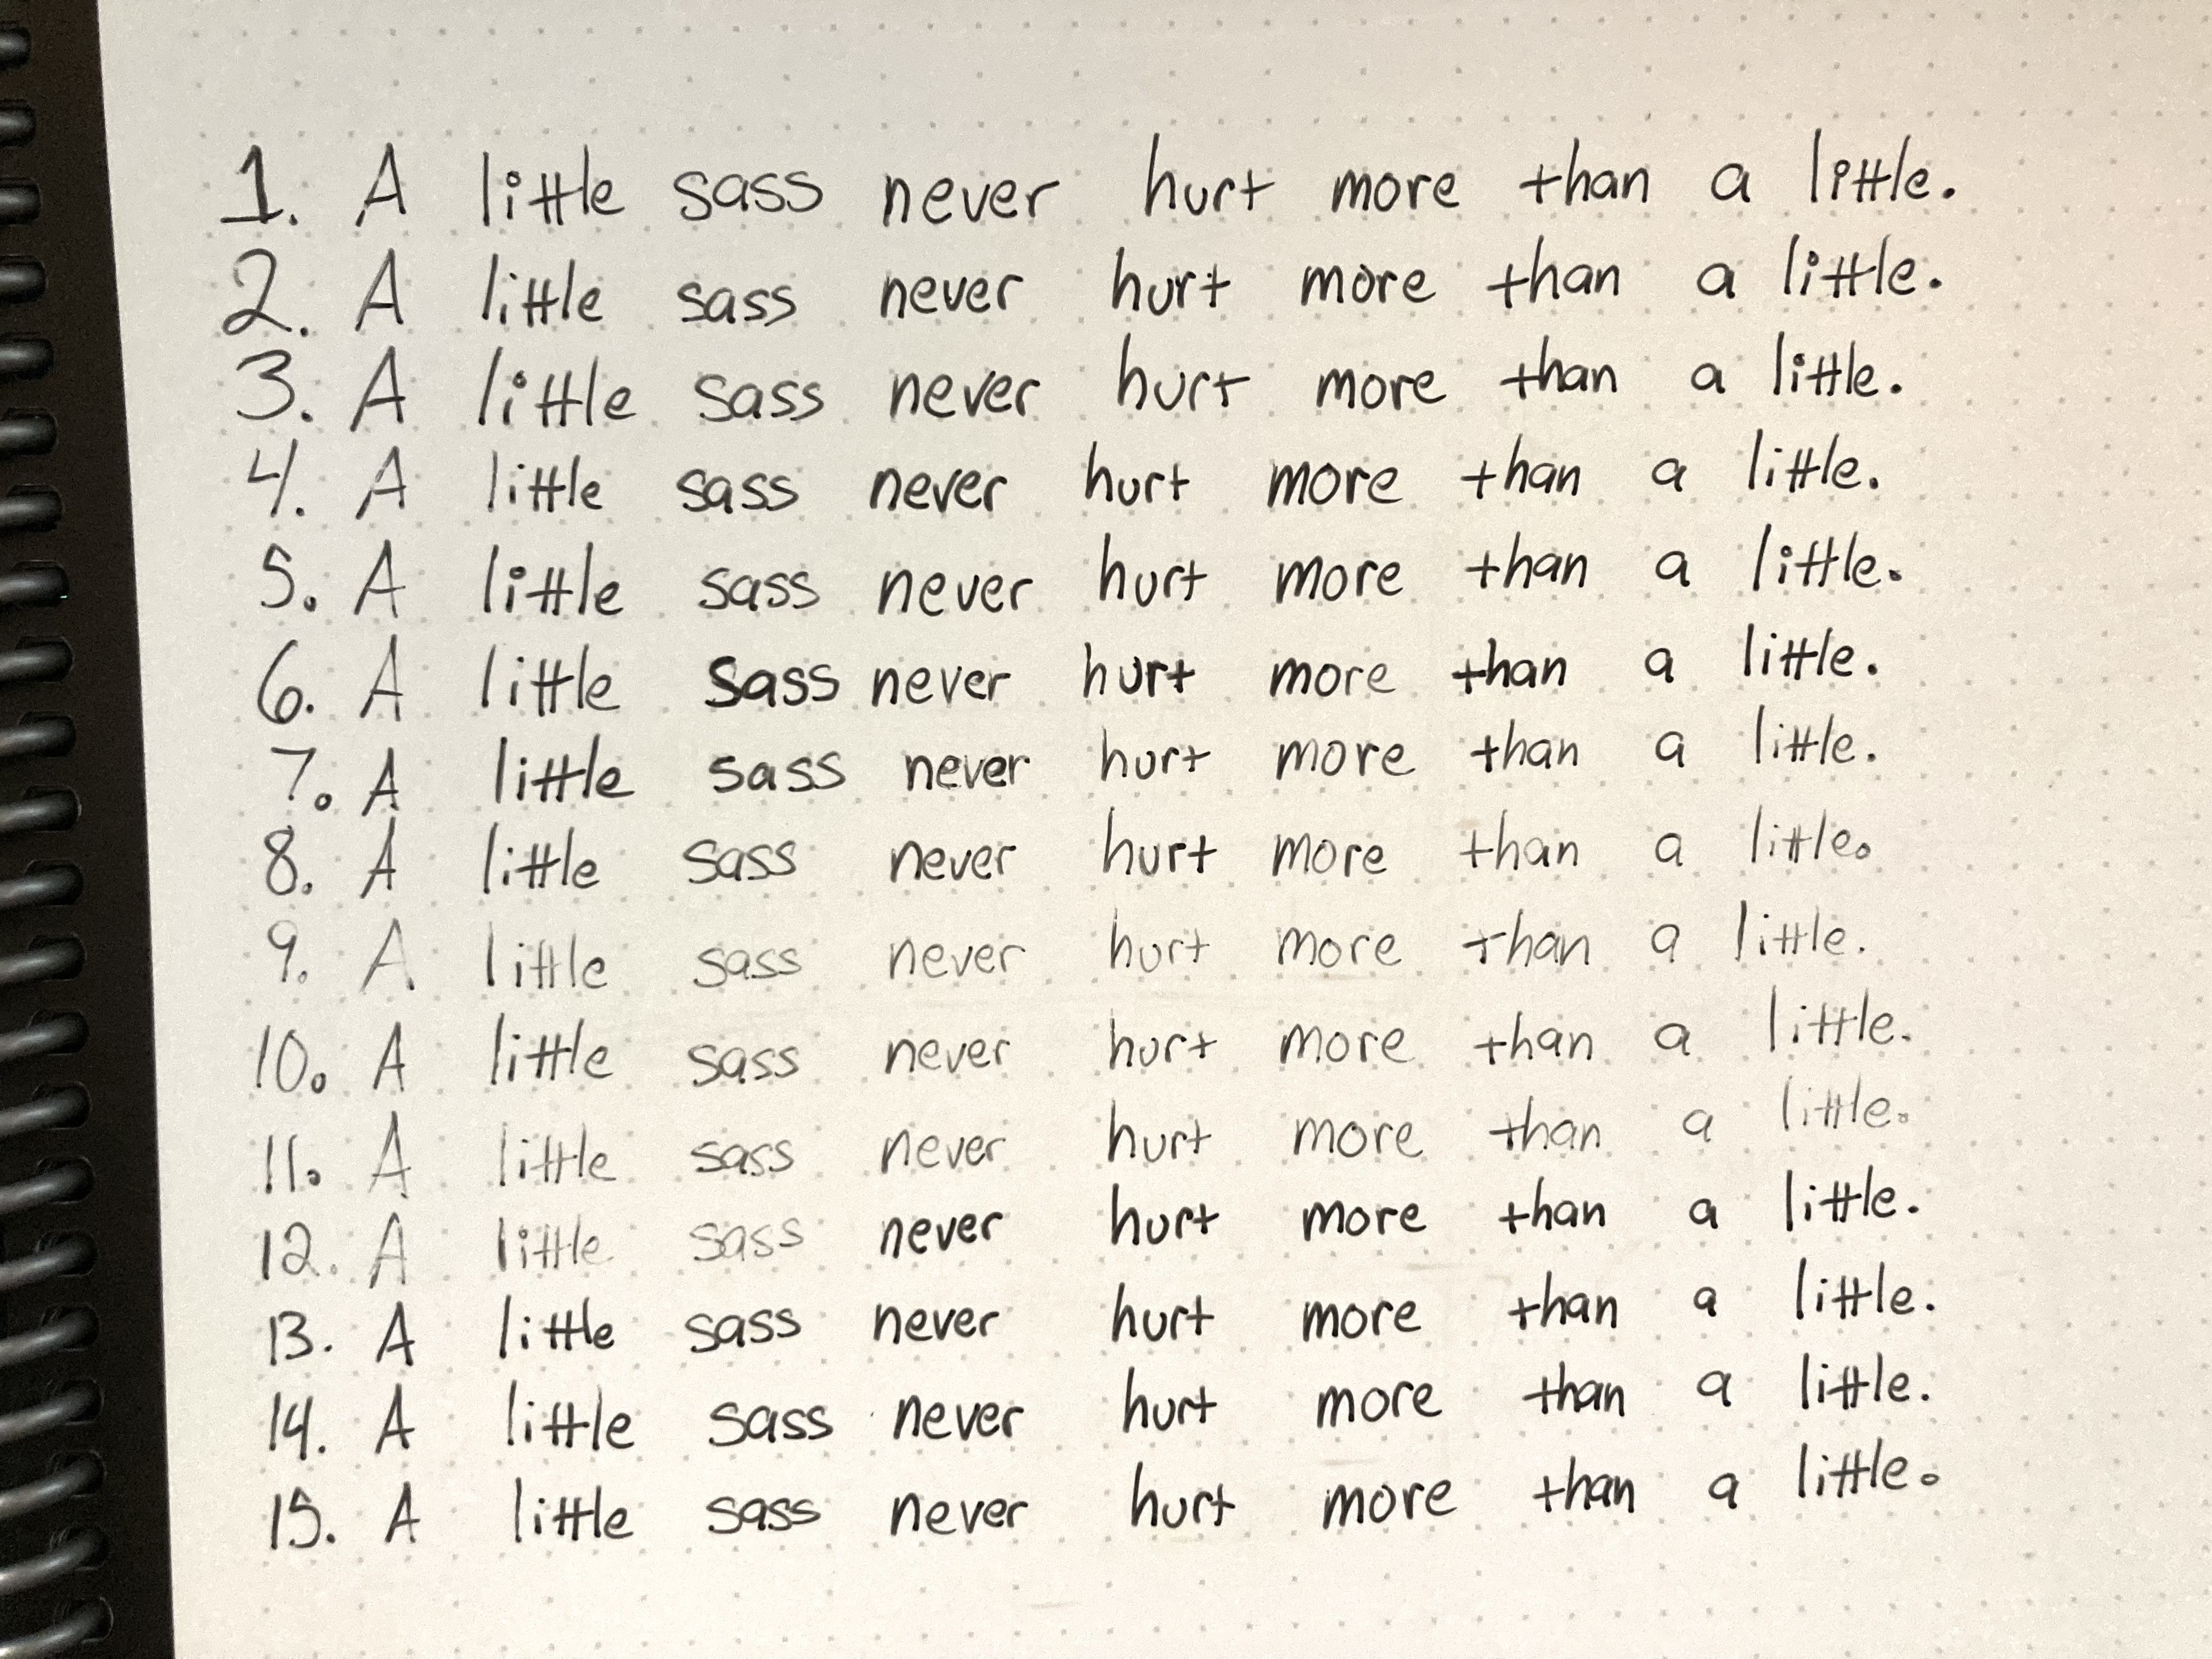 1. A little sass never hurt more than a little.
2. A little sass never hurt more than a little.
3. A little sass never hurt more than a little.
4. A little sass never hurt more than a little.
5. A little sass never hurt more than a little.
6. A little sass never hurt more than a little.
7. A little sass never hurt more than a little.
8. A little sass never hurt more than a little.
9. A little sass never hurt more than a little.
10. A little sass never hurt more than a little.
11. A little sass never hurt more than a little.
12. A little sass never hurt more than a little.
13. A little sass never hurt more than a little.
14. A little sass never hurt more than a little.
15. A little sass never hurt more than a little.